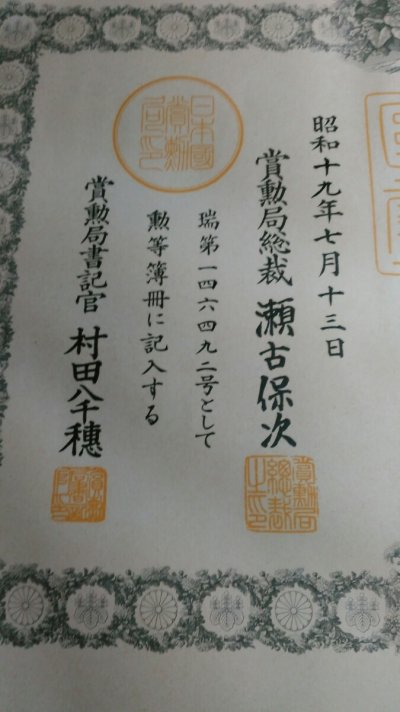 昭和十九年七月十三日
賞勲局総裁 瀬古保次
瑞第一四六四九二号として
勲等簿冊に記入する
賞勲局書記官 村田八千穂
日本國賞勲局印
賞勲局総裁之印